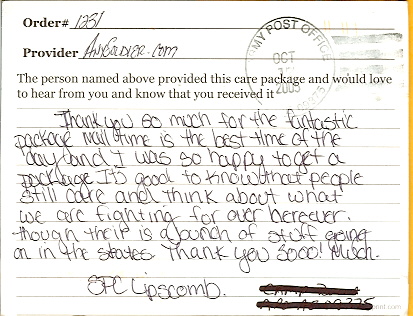 Order# 1231
Provider AnySoldier.com
The person named above provided this care package and would love
to hear from you and know that you received it
MY POST OFFICE
OCT
2005
Thank you so much for the fintastic
package mail time is the best time of the
day and I was so happy to get a
package It's good to know that people
still care and think about what
we are fighting for over hereever.
though their is a bunch of stuff going
on in the states. Thank you sooo! Much.
SPC Lipscomb.